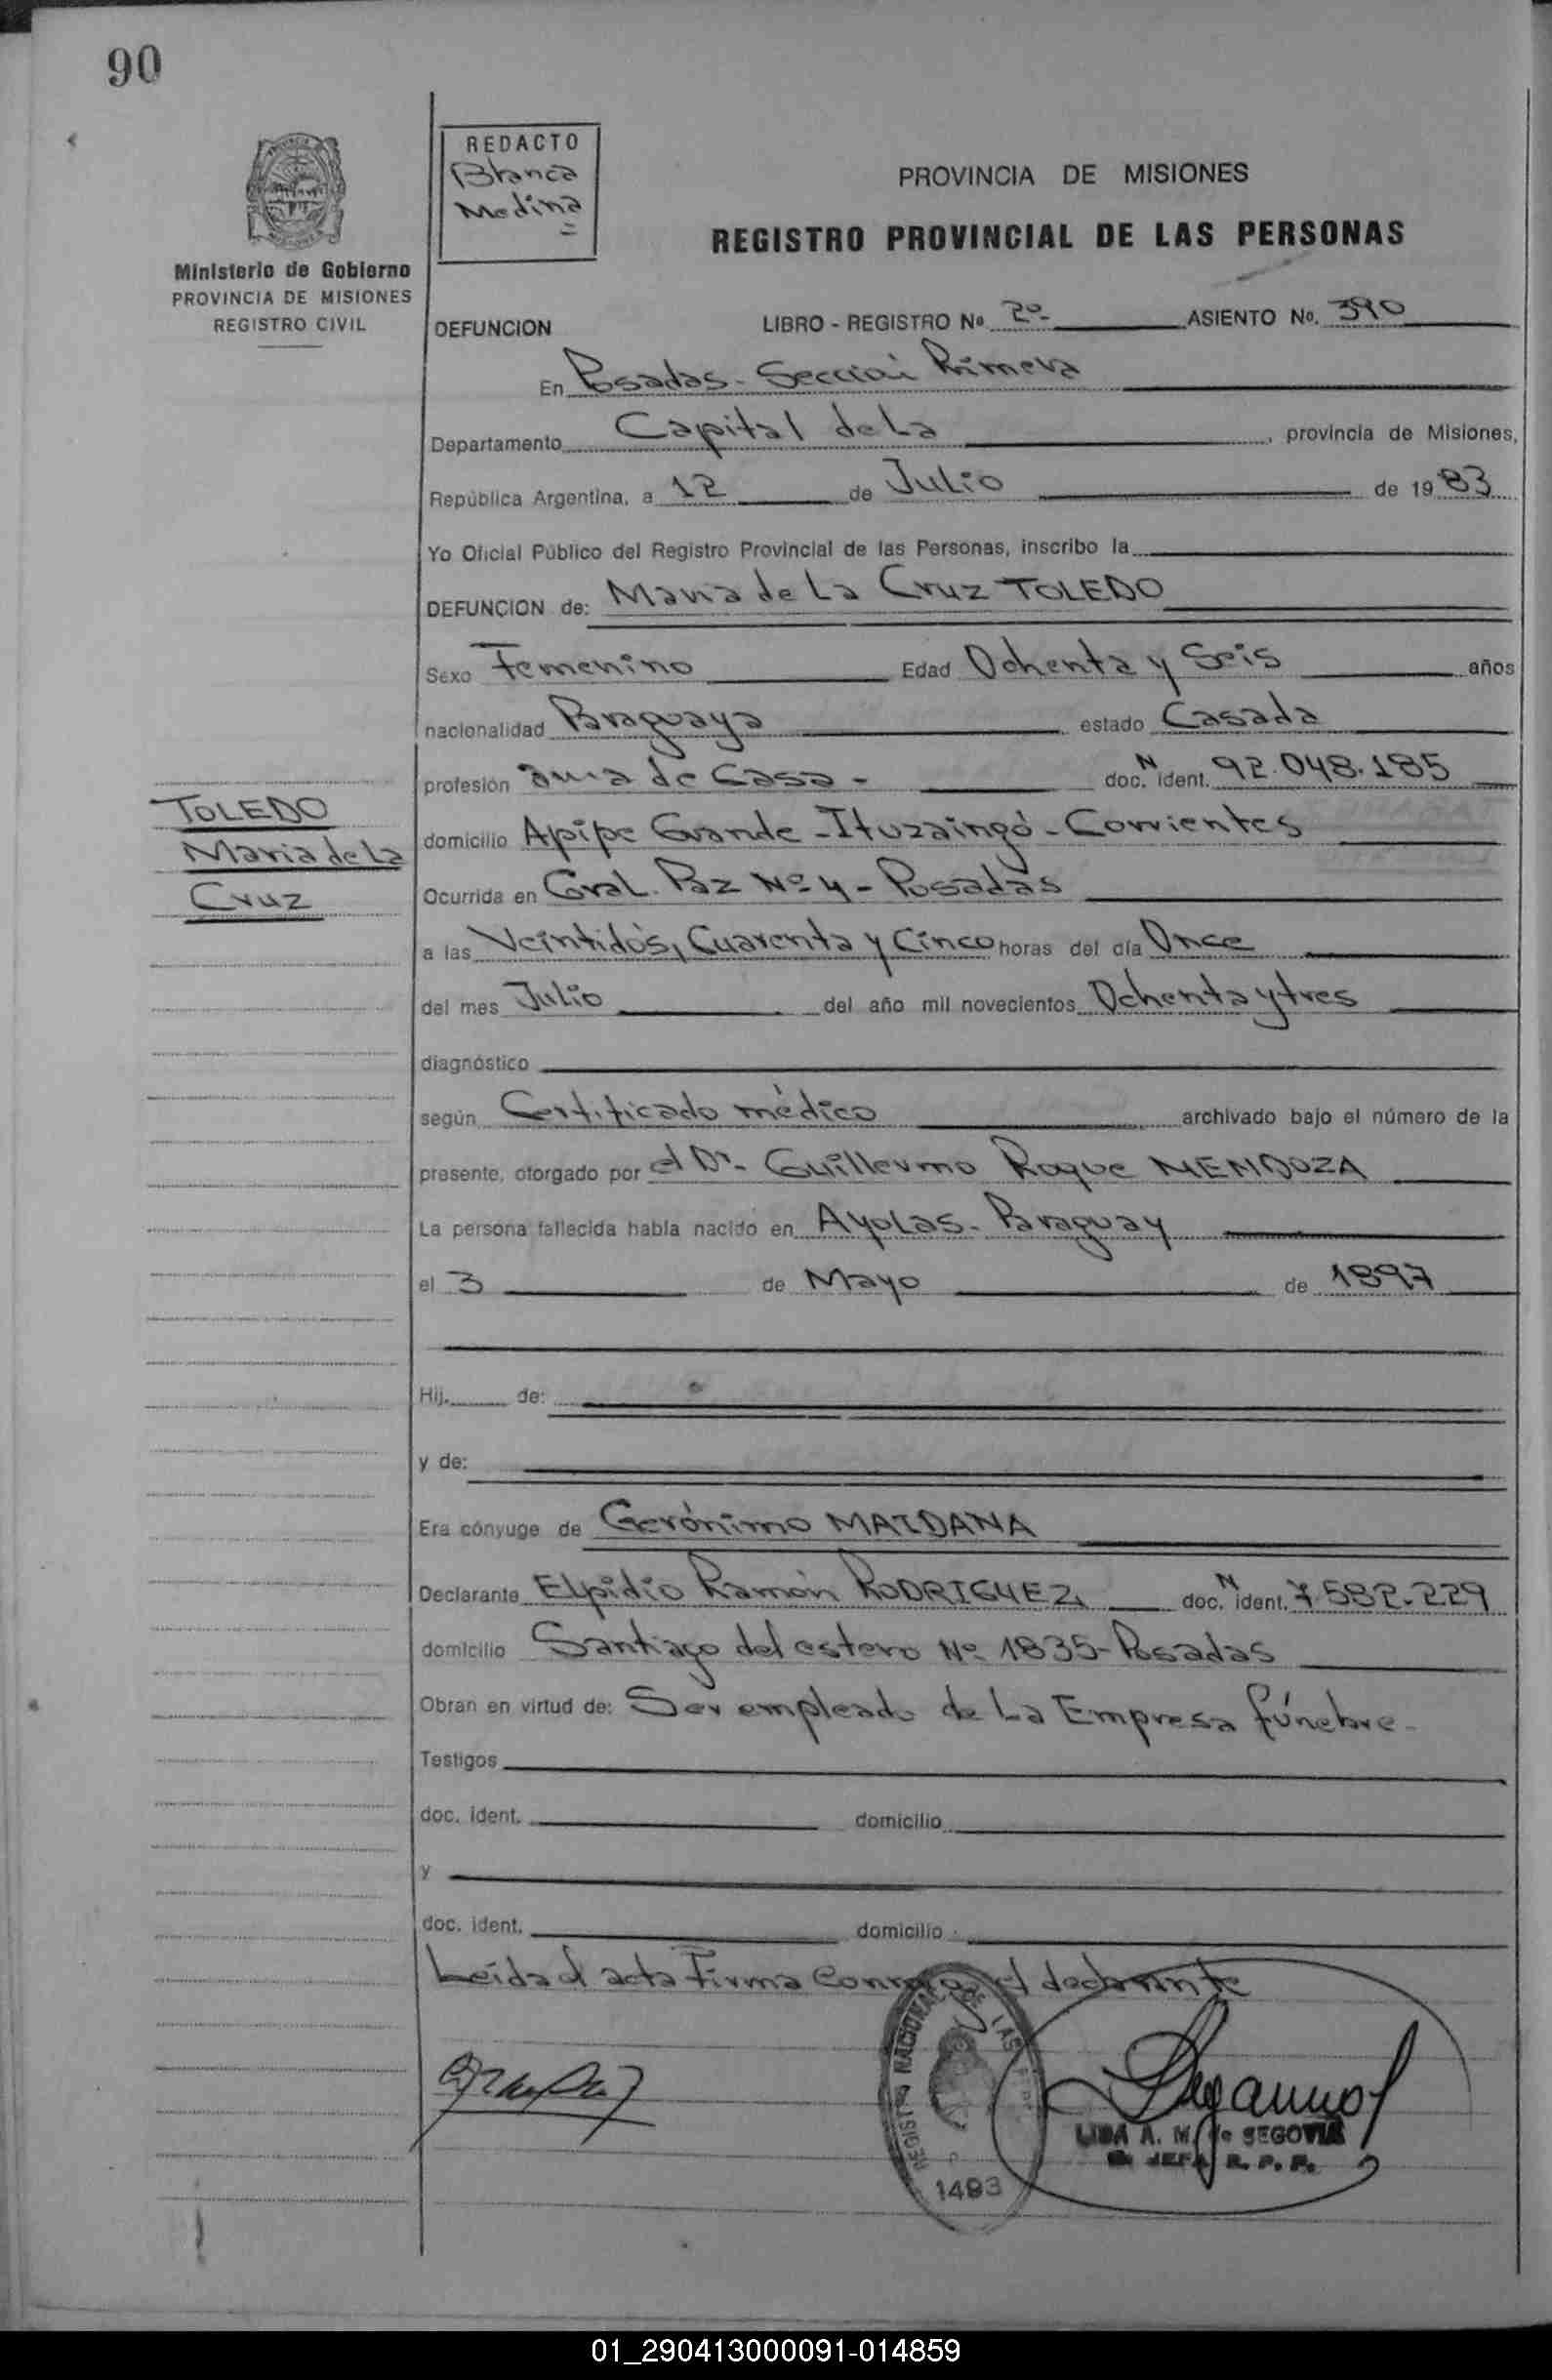 90
REDACTO
Blanca
Medina
Ministerio de Gobierno
PROVINCIA DE MISIONES
REGISTRO CIVIL
PROVINCIA DE MISIONES
REGISTRO PROVINCIAL DE LAS PERSONAS
DEFUNCION LIBRO - REGISTRO Nº 2º ASIENTO Nº. 390
En Posadas - Sección Primera
Departamento Capital de La, provincia de Misiones,
República Argentina, a 12 de Julio de 1983
Yo Oficial Público del Registro Provincial de las Personas, inscribo la
DEFUNCION de: Maria de La Cruz TOLEDO
Sexo Femenino Edad Ochenta y Seis años
nacionalidad Paraguaya estado Casada
profesión ama de Casa - doc. N ident. 92.048.185
TOLEDO
Maria de La
Cruz
domicilio Apipe Grande - Ituzaingó - Corrientes
Ocurrida en Gral. Paz Nº 4 - Posadas
a las Veintidós, Cuarenta y Cinco horas del día Once
del mes Julio del año mil novecientos Ochenta y tres
diagnóstico
según Certificado médico archivado bajo el número de la
presente, otorgado por el Dr. Guillermo Roque MENDOZA
La persona fallecida había nacido en Ayolas - Paraguay
el 3 de Mayo de 1897
Hij. de:
y de:
Era cónyuge de Gerónimo MAIDANA
Declarante Elpidio Ramón RODRIGUEZ doc. N ident. 7.582.229
domicilio Santiago del estero Nº 1835 - Posadas
Obran en virtud de: Ser empleado de La Empresa fúnebre -
Testigos
doc. ident. domicilio
y
doc. ident. domicilio
Leída el acta Firma Conmigo el declarante
REGISTRO NACIONAL DE LAS
1493
LIDA A. M. de SEGOVIA
JEFA R. P. P.
01_290413000091-014859